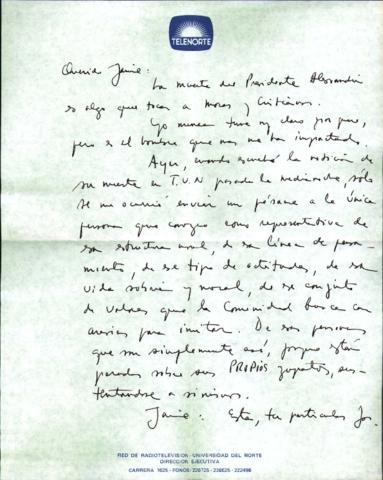 TELENORTE
Querido Jaime:
La muerte del Presidente Alessandri
es algo que toca a moros y cristianos.
Yo nunca tuve muy claro por qué,
pero es el hombre que más me ha impactado.
Ayer, cuando escuché la noticia de
su muerte en T.V.N pasada la medianoche, sólo
se me ocurrió enviar un pésame a la única
persona que conozco como representativa de
esa estructura moral, de esa línea de pensa-
miento, de ese tipo de actitudes, de esa
vida sobria y moral, de ese conjunto
de valores que la Comunidad busca con
ansias para imitar. De esas personas
que son simplemente así, porque están
parados sobre sus PROPIOS zapatos, sus-
tentándose a sí mismos.
Jaime: Este, tu particular
RED DE RADIOTELEVISION - UNIVERSIDAD DEL NORTE
DIRECCION EJECUTIVA
CARRERA 1625 - FONOS: 226725 - 222496